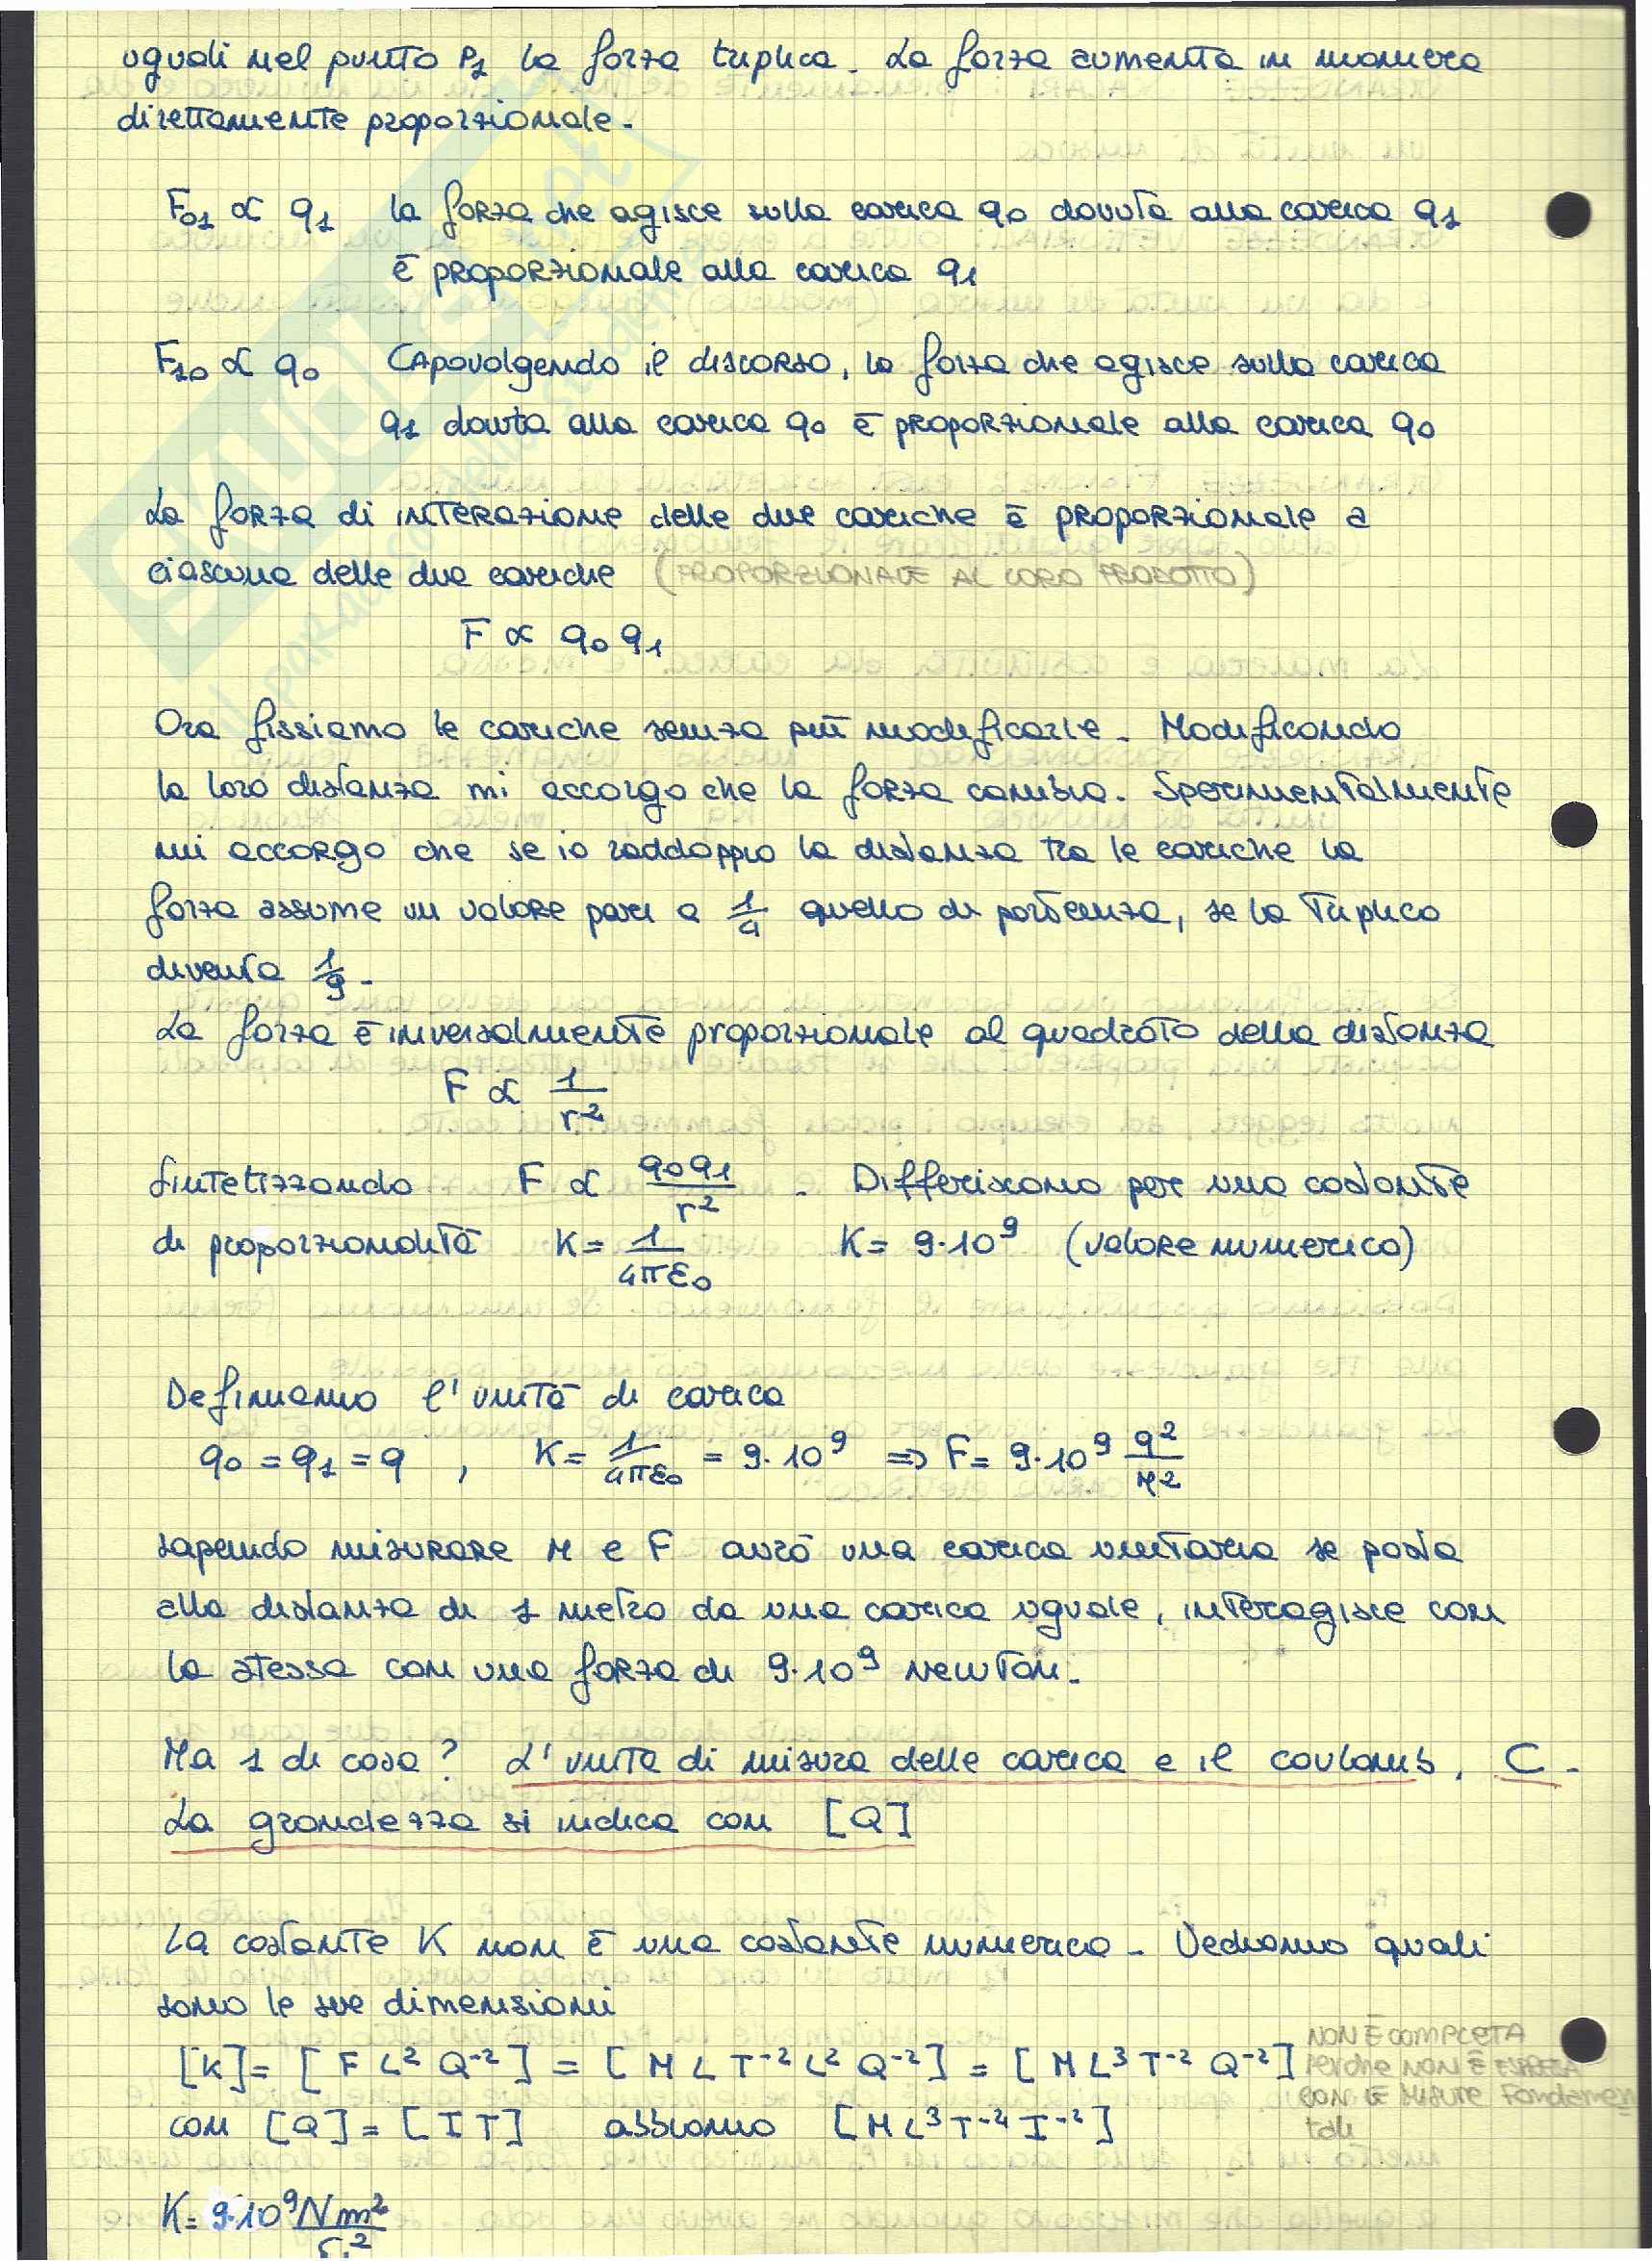 uguali nel punto P1 la forza triplica. La forza aumenta in maniera
direttamente proporzionale.
F01 ∝ q1 la forza che agisce sulla carica q0 dovuta alla carica q1
è proporzionale alla carica q1
F10 ∝ q0 Capovolgendo il discorso, la forza che agisce sulla carica
q1 dovuta alla carica q0 è proporzionale alla carica q0
La forza di interazione delle due cariche è proporzionale a
ciascuna delle due cariche (PROPORZIONALE AL LORO PRODOTTO)
F ∝ q0 q1
Ora fissiamo le cariche senza più modificarle. Modificando
la loro distanza mi accorgo che la forza cambia. Sperimentalmente
mi accorgo che se io raddoppio la distanza tra le cariche la
forza assume un valore pari a 1/4 quello di partenza, se la triplico
diventa 1/9.
La forza è inversalmente proporzionale al quadrato della distanza
F ∝ 1/r²
Sintetizzando F ∝ q0q1/r² . Differiscono per una costante
di proporzionalità K= 1/4πε0 K= 9·10⁹ (valore numerico)
Definiamo l'unità di carica
q0 = q1 = q , K= 1/4πε0 = 9·10⁹ ⇒ F= 9·10⁹ q²/r²
sapendo misurare r e F avrò una carica unitaria se posta
alla distanza di 1 metro da una carica uguale, interagisce con
la stessa con una forza di 9·10⁹ Newton.
Ma 1 di cosa? L'unità di misura delle carica e il coulomb, C.
La grandezza si indica con [Q]
La costante K non è una costante numerica. Vediamo quali
sono le sue dimensioni
[K]= [F L² Q⁻²] = [M L T⁻² L² Q⁻²] = [M L³ T⁻² Q⁻²] NON È COMPLETA
perche NON È ESPRESSA
CON LE MISURE Fondamen
tali
con [Q]= [I T] abbiamo [M L³ T⁻⁴ I⁻²]
K= 9·10⁹ Nm²/C²